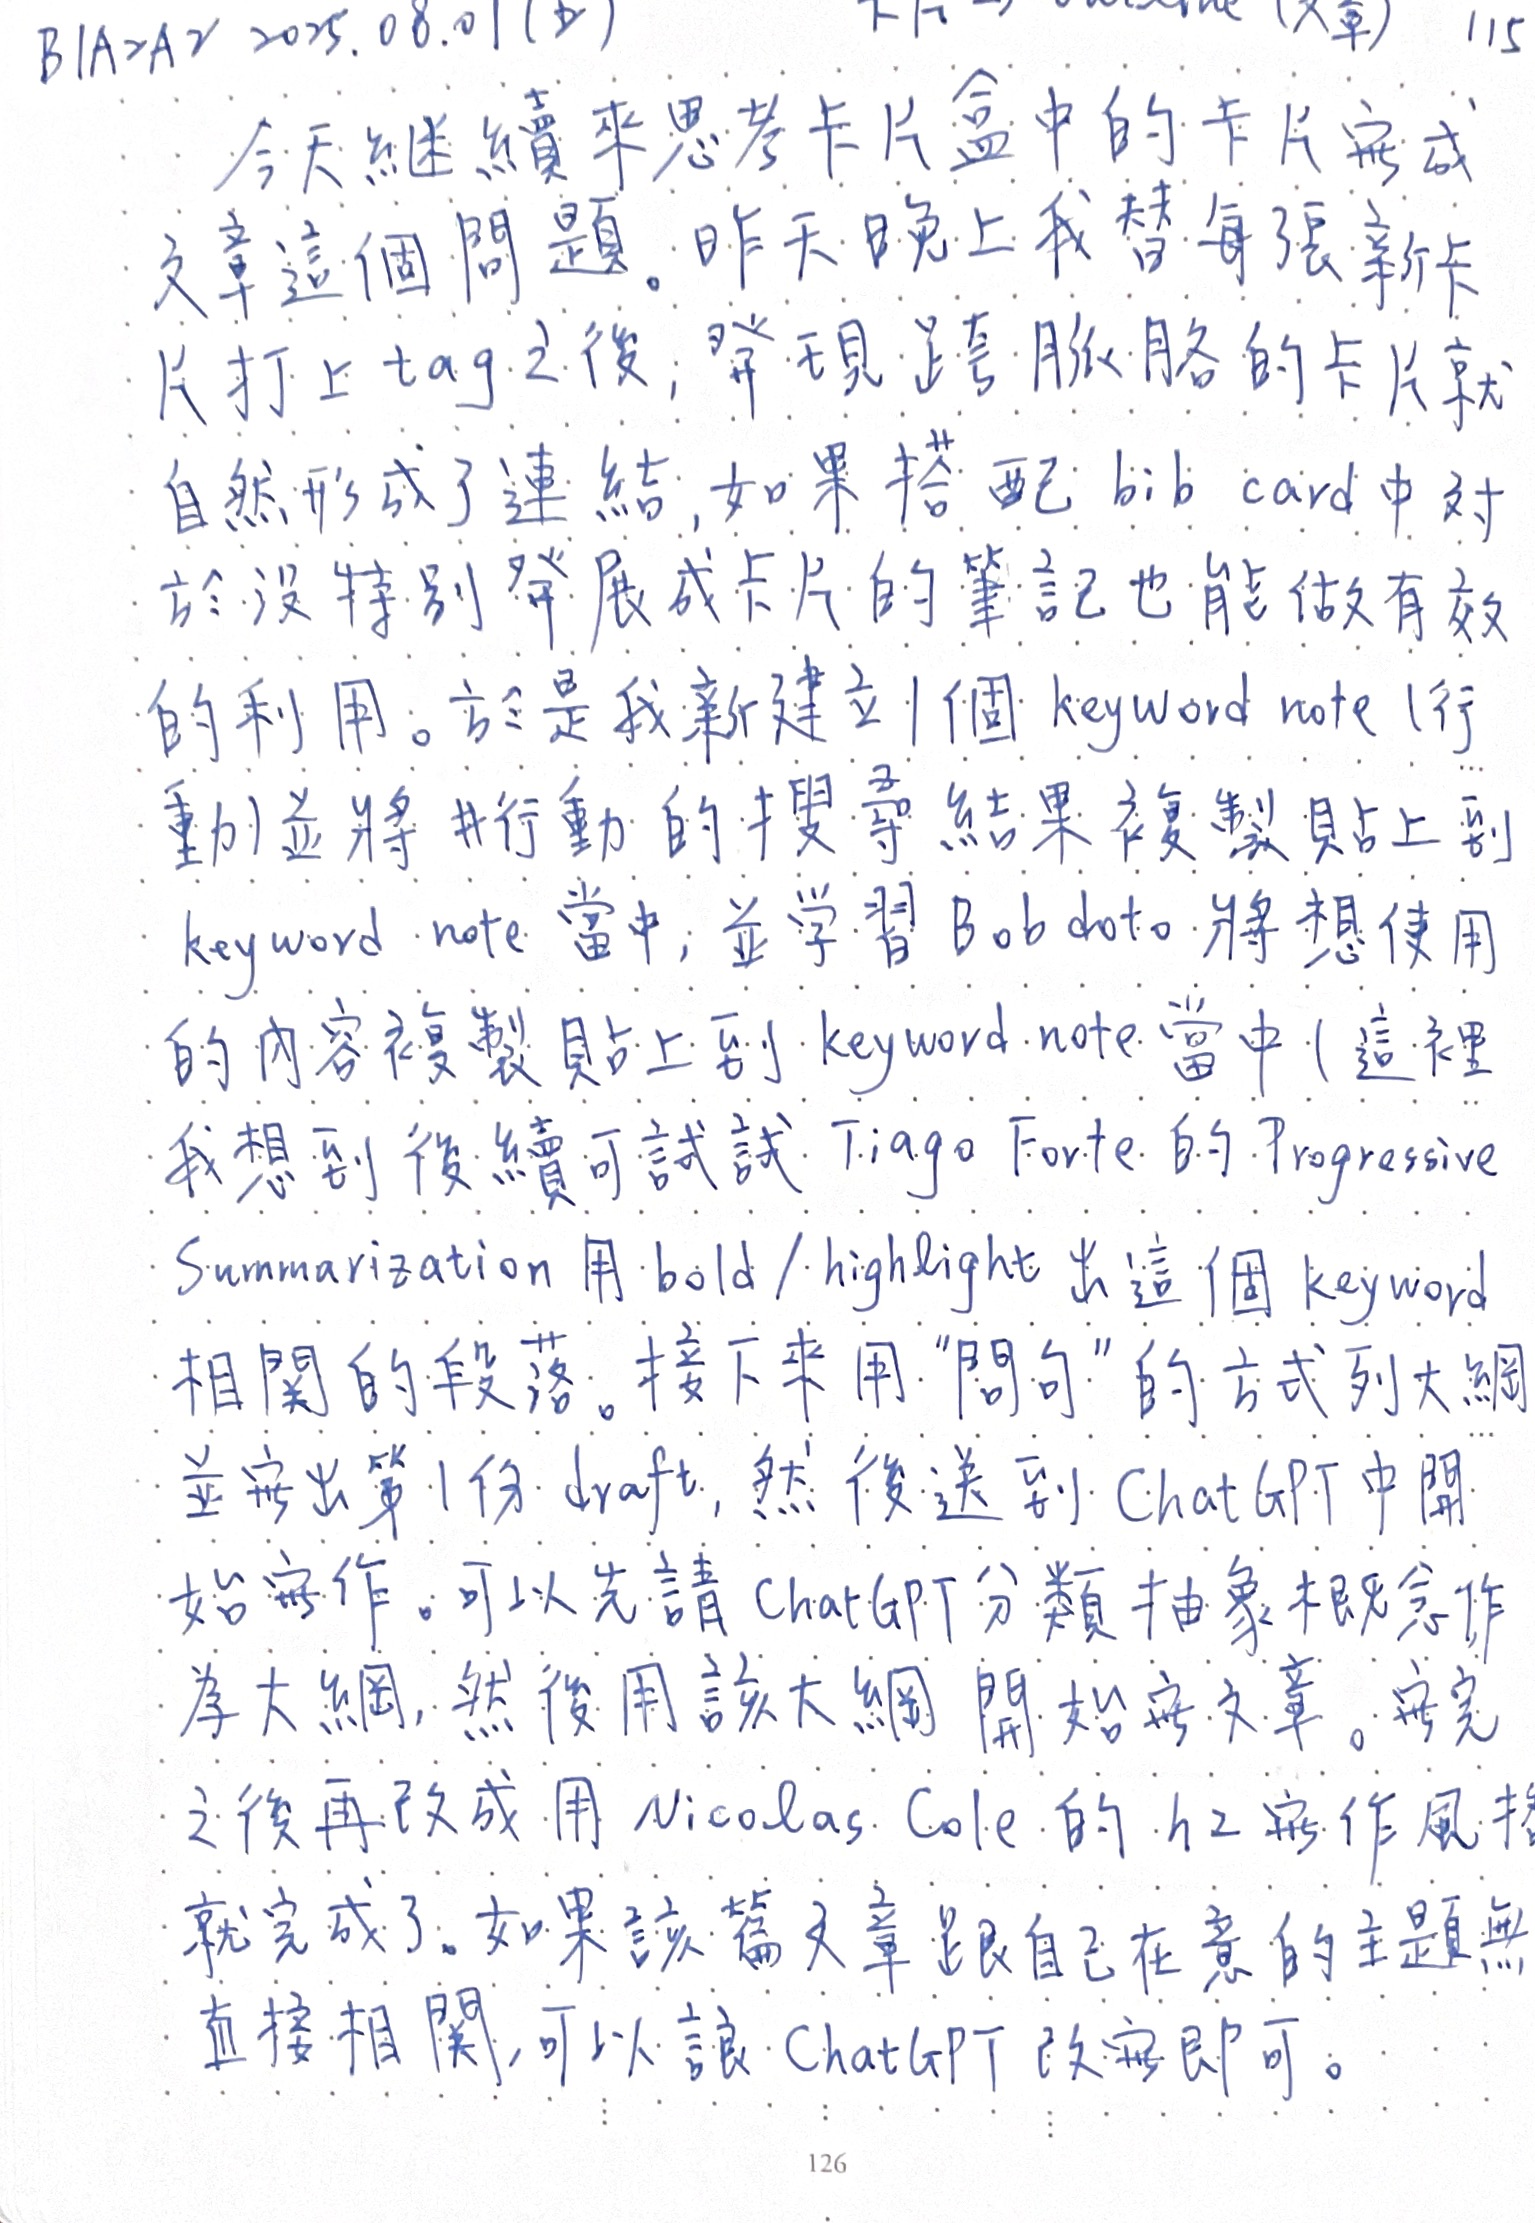 B1A2A2 2025.08.01(五) 卡片 → outline (文章) 115
今天継續來思考卡片盒中的卡片寫成
文章這個問題。昨天晚上我替每張新卡
片打上tag之後,發現跨脈絡的卡片就
自然形成了連結,如果搭配 bib card中對
於沒特別發展成卡片的筆記也能做有效
的利用。於是我新建立1個 keyword note (行
動)並將#行動的搜尋結果複製貼上到
keyword note 當中,並学習Bob doto將想使用
的內容複製貼上到 keyword note 當中(這裡
我想到後續可試試 Tiago Forte 的 Progressive
Summarization 用 bold / highlight 出這個 keyword
相関的段落。接下來用"問句"的方式列大綱
並寫出第1份 draft, 然後送到 ChatGPT中開
始寫作。可以先請 ChatGPT分類抽象概念作
為大綱,然後用該大綱開始寫文章。寫完
之後再改成用 Nicolas Cole 的 h2 寫作風格
就完成了。如果該篇文章跟自己在意的主題無
直接相関,可以讓 ChatGPT 改寫即可。
126